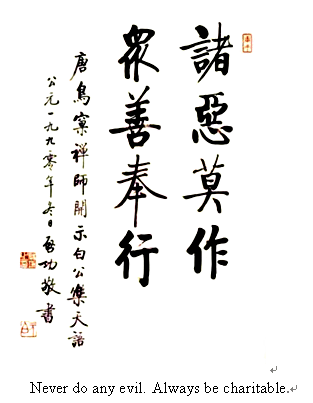 諸惡莫作
眾善奉行
唐鳥窠禪師開示白公樂天語
公元一九九零年冬日啟功敬書
Never do any evil. Always be charitable.